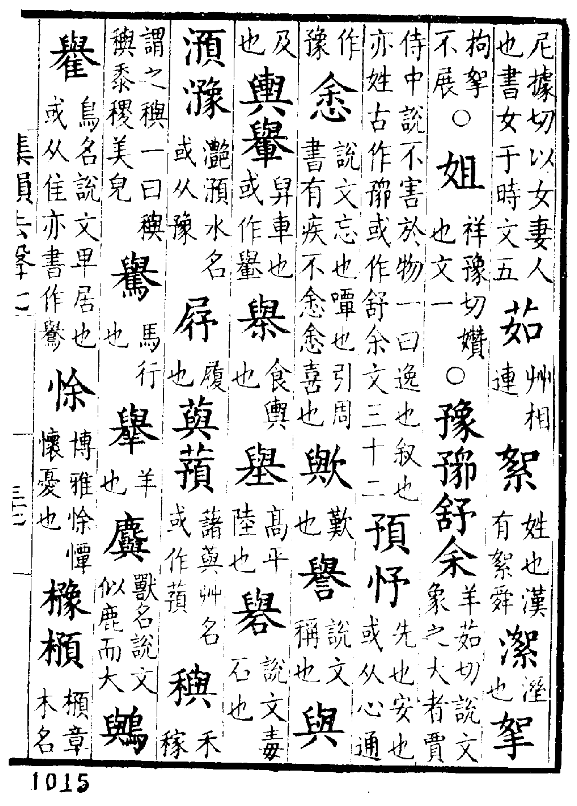 尼據切以女妻人也書女于時文五茹艸相連絮姓也漢有絮舜㵖溼也挐
拘挐不展○姐祥豫切嬻也文一○豫䂊舒余羊茹切說文象之大者賈
侍中說不害於物一曰逸也叙也亦姓古作䂊或作舒余文三十二預忬先也安也或从心通
作豫悆說文忘也嘾也引周書有疾不悆悆喜也歟歎也譽說文稱也與
及也輿轝舁車也或作轝食輿也高平陸也礜說文毒石也
澦㶛灩澦水名或从豫履也藇蕷藷藇艸名或作蕷穥禾稼
謂之穥一曰穥穥黍稷美皃馬行也羊也獸名說文似鹿而大鸒
鳥名說文卑居也或从隹亦書作鸒悇博雅悇憛懷憂也櫲章木名
集韻去聲七
1015